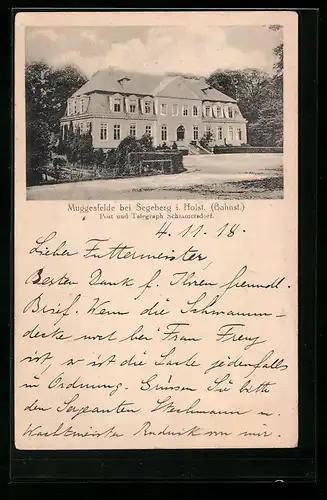 Müggesfelde bei Segeberg i. Holst. (Bahnst.)
Post und Telegraph Schlamersdorf.
4.11.18.
Lieber Futtermeister,
Besten Dank f. Ihren freundl.
Brief. Wenn die Schwamm-
decke noch bei Frau Frey
ist, so ist die Sache jedenfalls
in Ordnung. Grüssen Sie bitte
den Sergeanten Wechmann u.
Wachtmeister von mir.